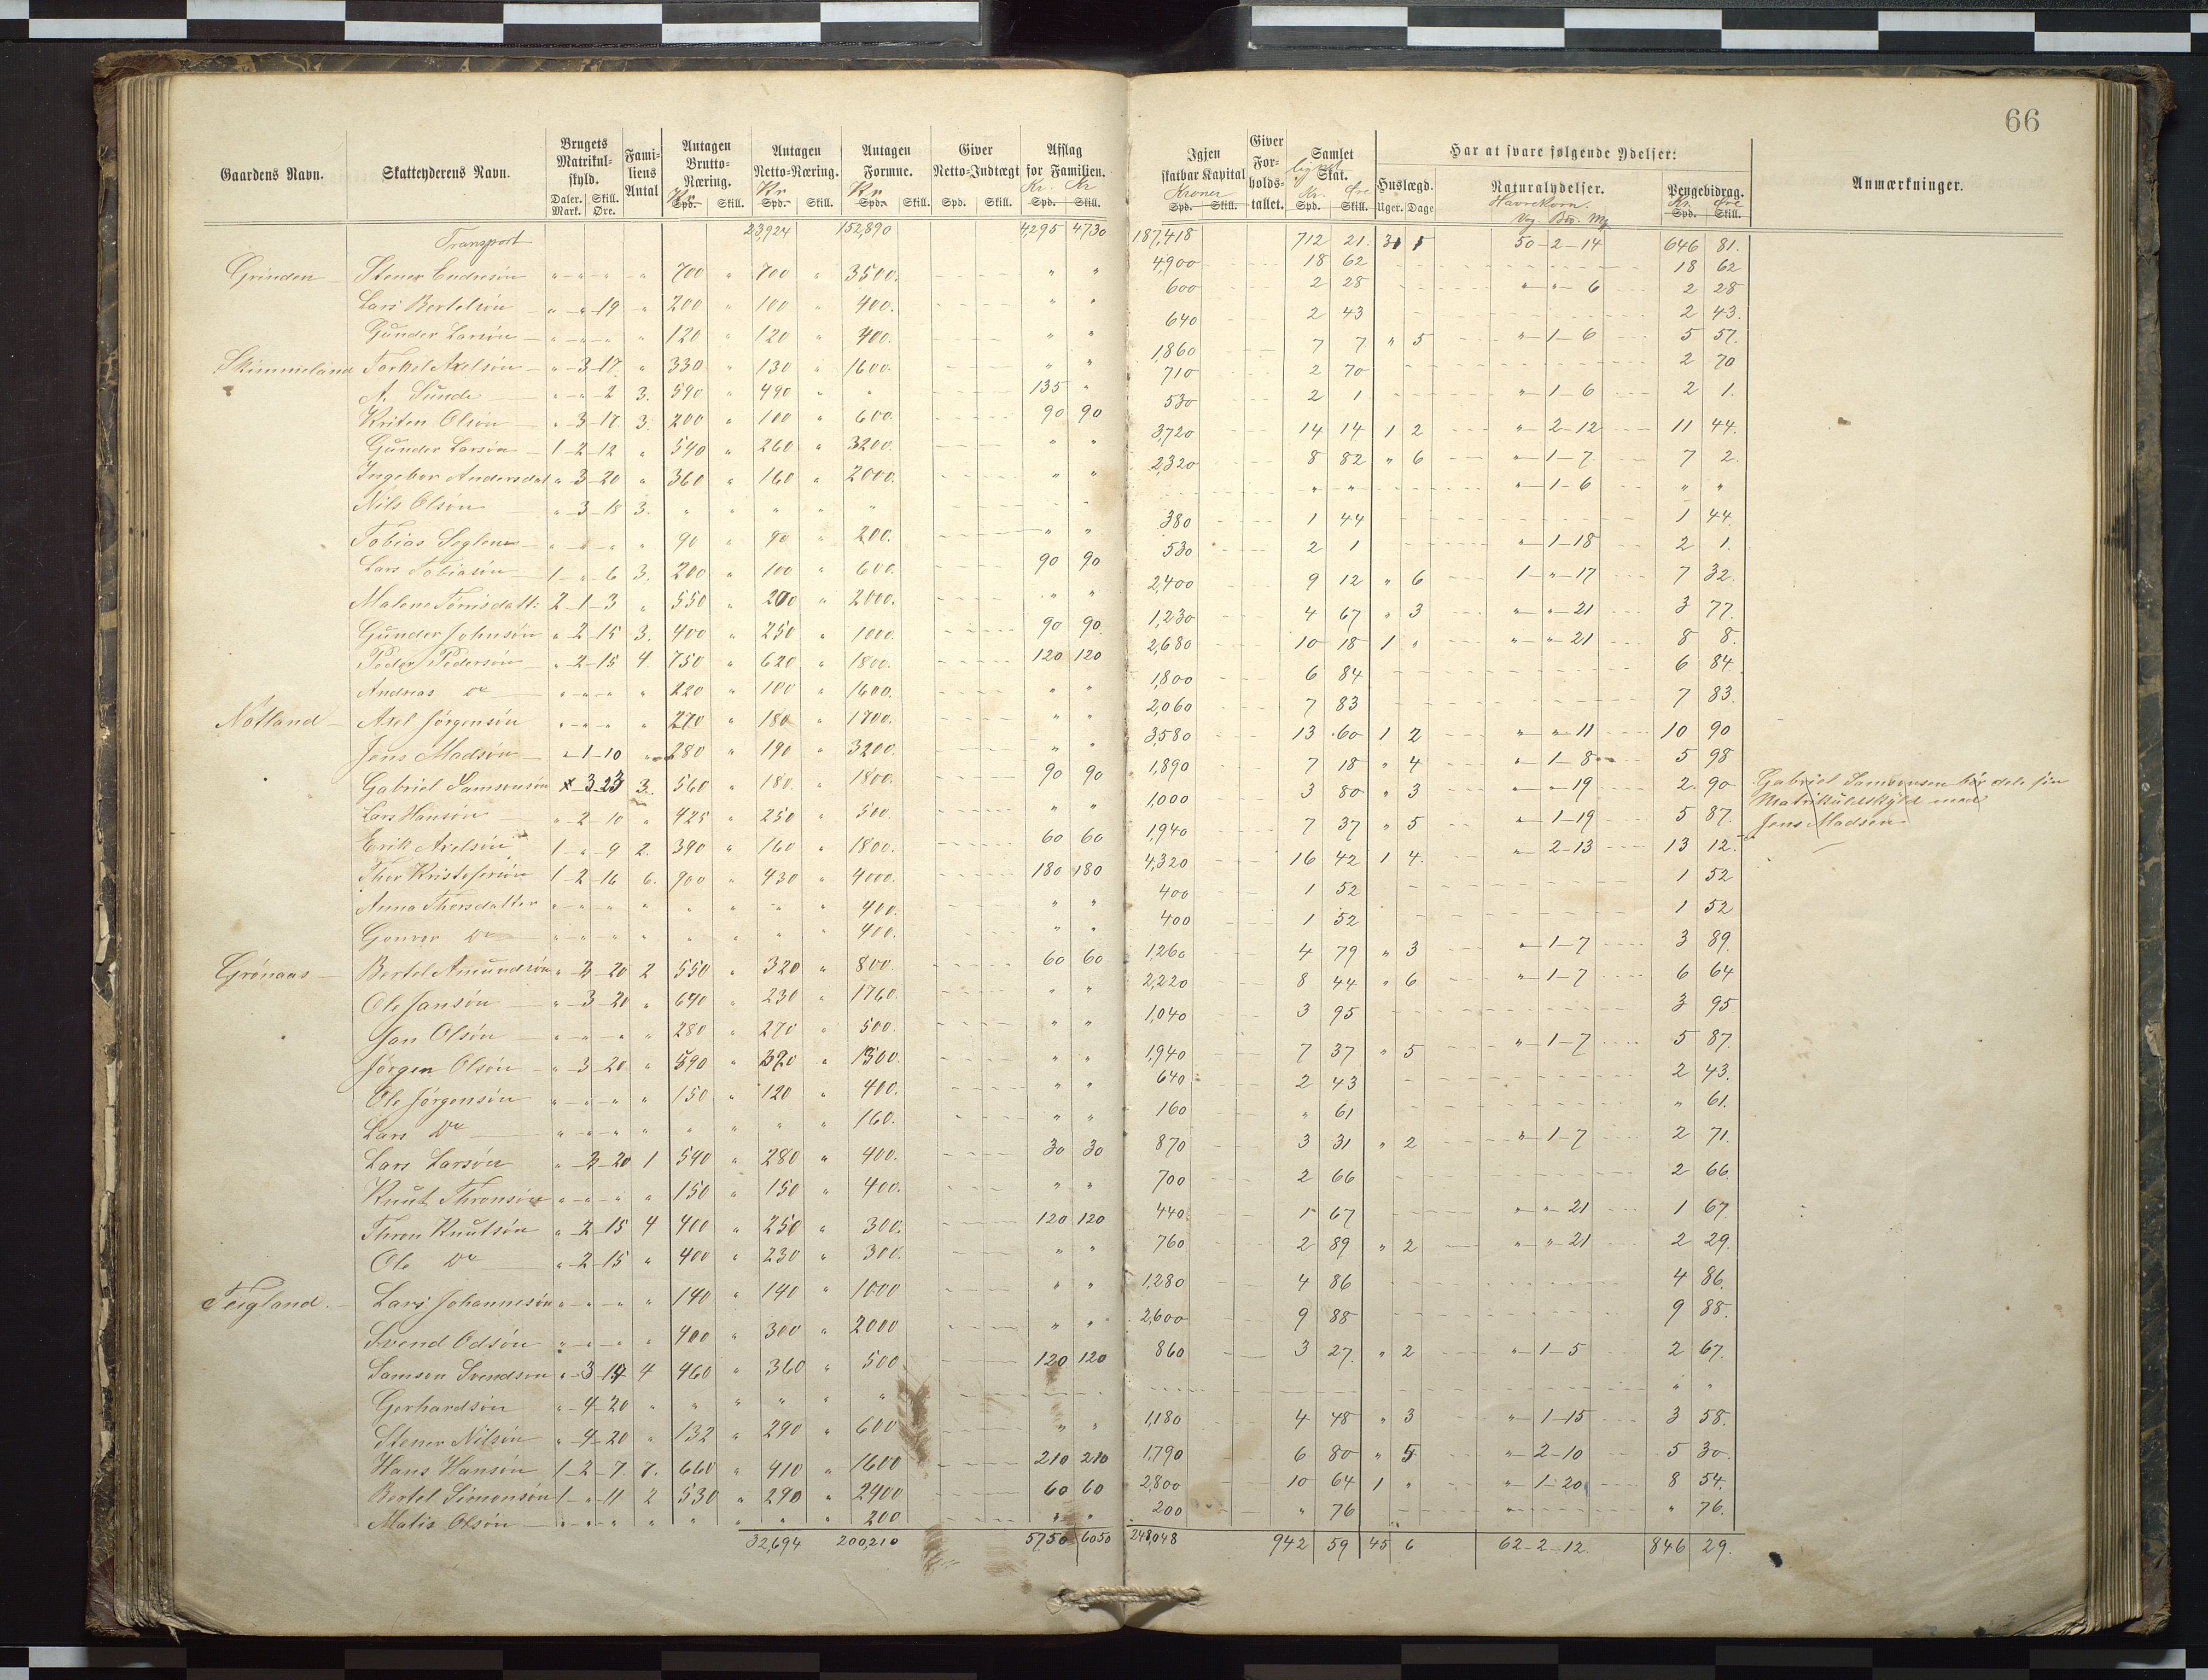 66
Gaardens Navn. Skatteyderens Navn. Brugets Matrikul-skyld. Fami-liens Antal Antagen Brutto-Næring. Antagen Netto-Næring. Antagen Formue. Giver Netto-Indtægt Afslag for Familien. Igjen skatbar Kapital Giver For-holds-tallet. Samlet Skat. Har at svare følgende Ydelser: Anmærkninger.
Daler. Mark. Skill. Øre. Kr Spd. Skill. Kr Spd. Skill. Kr Spd. Skill. Spd. Skill. Kr. Spd. Kr Skill. Kroner Spd. Skill. Kr. Spd. Øre Skill. Huslægd. Uger. Dage Naturalydelser. Havrekorn. Pengebidrag. Kr. Spd. Øre Skill.
Transport 23,924 152,890 4295 4730 187,418 712 21. 50-2-14 646 81.
Grinden Stener Endresøn 700 700 3500. 4,900 18 62 18 62
Lars Bertelsøn 19 200 100 400. 600 2 28 6 2 28
Gunder Larsøn 120 120 400. 640 2 43 2 43.
Skimmeland Torkel Axelsøn 3-17 330 130 1600. 1,860 7 7 " 5 "-1-6 5 57.
A. Sunde 2 3. 590 490 135 710 2 70 2 70
Kristen Olsøn 3-17 3. 200 100 600. 90 90 530 2 1 "-1-6 2 1.
Gunder Larsøn 1-2-12 540 260 3200. 3,720 14 14 1 2 "-2-12 11 44.
Ingebor Andersdat 3-20 360 160 2000. 2,320 8 82 " 6 "-1-7 7 2.
Nils Olsøn 3-18 3. " " " " " "-1-6 " "
Tobias Seglem 90 90 200. 380 1 44 1 44.
Lars Tobiasøn 1-"-6 3. 200 100 600. 90 90 530 2 1 "-1-18 2 1.
Malene Tønisdatt: 2-1-3 550 200 2000. 2,400 9 12 " 6 1-"-17 7 32.
Gunder Johnsøn 2-15 3. 400 250 1000. 90 90. 1,230 4 67 " 3 "-"-21 3 77.
Peder Pedersøn 2-15 4. 750 620 1800. 120 120 2,680 10 18 1 " "-"-21 8 8.
Andreas do 220 100 1600. 1,800 6 84 6 84
Nøtland Axel Jørgensøn 270 180 1700. 2,060 7 83 7 83.
Jens Madsøn 1-10 280 190 3200. 3,580 13 60 1 2 "-"-11 10 90
Gabriel Samsonsøn 3-23 3. 560 180 1800. 90 90 1,890 7 18 " 4 "-1-8 5 98
Lars Hansøn 2-10 425 250 500. 1,000 3 80 " 3 "-"-19 2. 90
Gabriel Samsonsen bør dele sin
Matrikulskyld med
Jens Madsen.
Erik Axelsøn 1-"-9 2. 390 160 1800. 60 60 1,940 7 37 " 5 "-1-19 5 87.
Thor Kristofersøn 1-2-16 6. 900 430 4000. 180 180 4,320 16 42 1 4. "-2-13 13 12.
Anna Thorsdatter 400. 400 1 52 1 52
Gonvor do 400. 400 1 52 1 52
Grønaas Bertel Amundsøn 3-20 2 550 320 800. 60 60 1,260 4 79 " 3 "-1-7 3 89.
Ole Jansøn 3-20 640 230 1760. 2,220 8 44 " 6 "-1-7 6 64
Jan Olsøn 280 270 500. 1,040 3 95 3 95
Jørgen Olsøn 3-20 590 320 1300. 1,940 7 37 " 5 "-1-7 5 87
Ole Jørgensøn 150 120 400. 640 2 43 2 43.
Lars do 160. 160 " 61 " 61.
Lars Larsøn 3-20 1 540 280 400. 30 30 870 3 31 " 2 "-1-7 2 71.
Knut Thronsøn 150 150 400. 700 2 66 2 66.
Thron Knutsøn 2-15 4 400 250 300. 120 120 440 1 67 "-"-21 1 67
Ole do 2-15 400 230 300. 760 2 89 " 2 "-"-21 2 29.
Teigland Lars Johannesøn 140 140 1000 1,280 4 86 4 86.
Svend Odsøn 400 300 2000 2,600 9 88 9 88.
Samson Svendson 3-19 4 460 360 500 120 120 860 3 27 " 2 "-1-5 2 67.
Gerhardsøn 4-20 " "
Stener Nilsøn 4-20 132 290 600 1,180 4 48 " 3 "-1-15 3 58.
Hans Hansøn 1-2-7 7. 660 410 1600 210 210 1,790 6 80 " 5 "-2-10 5 30.
Bertel Simonsøn 1-"-11 2 530 290 2400 60 60 2,800 10 64 1 " "-1-20 8 54.
Matis Olsøn 200 200 " 76 " 76.
32,694 200,210 5750 6050 248,048 942 59 45 6 62-2-12. 846 29.